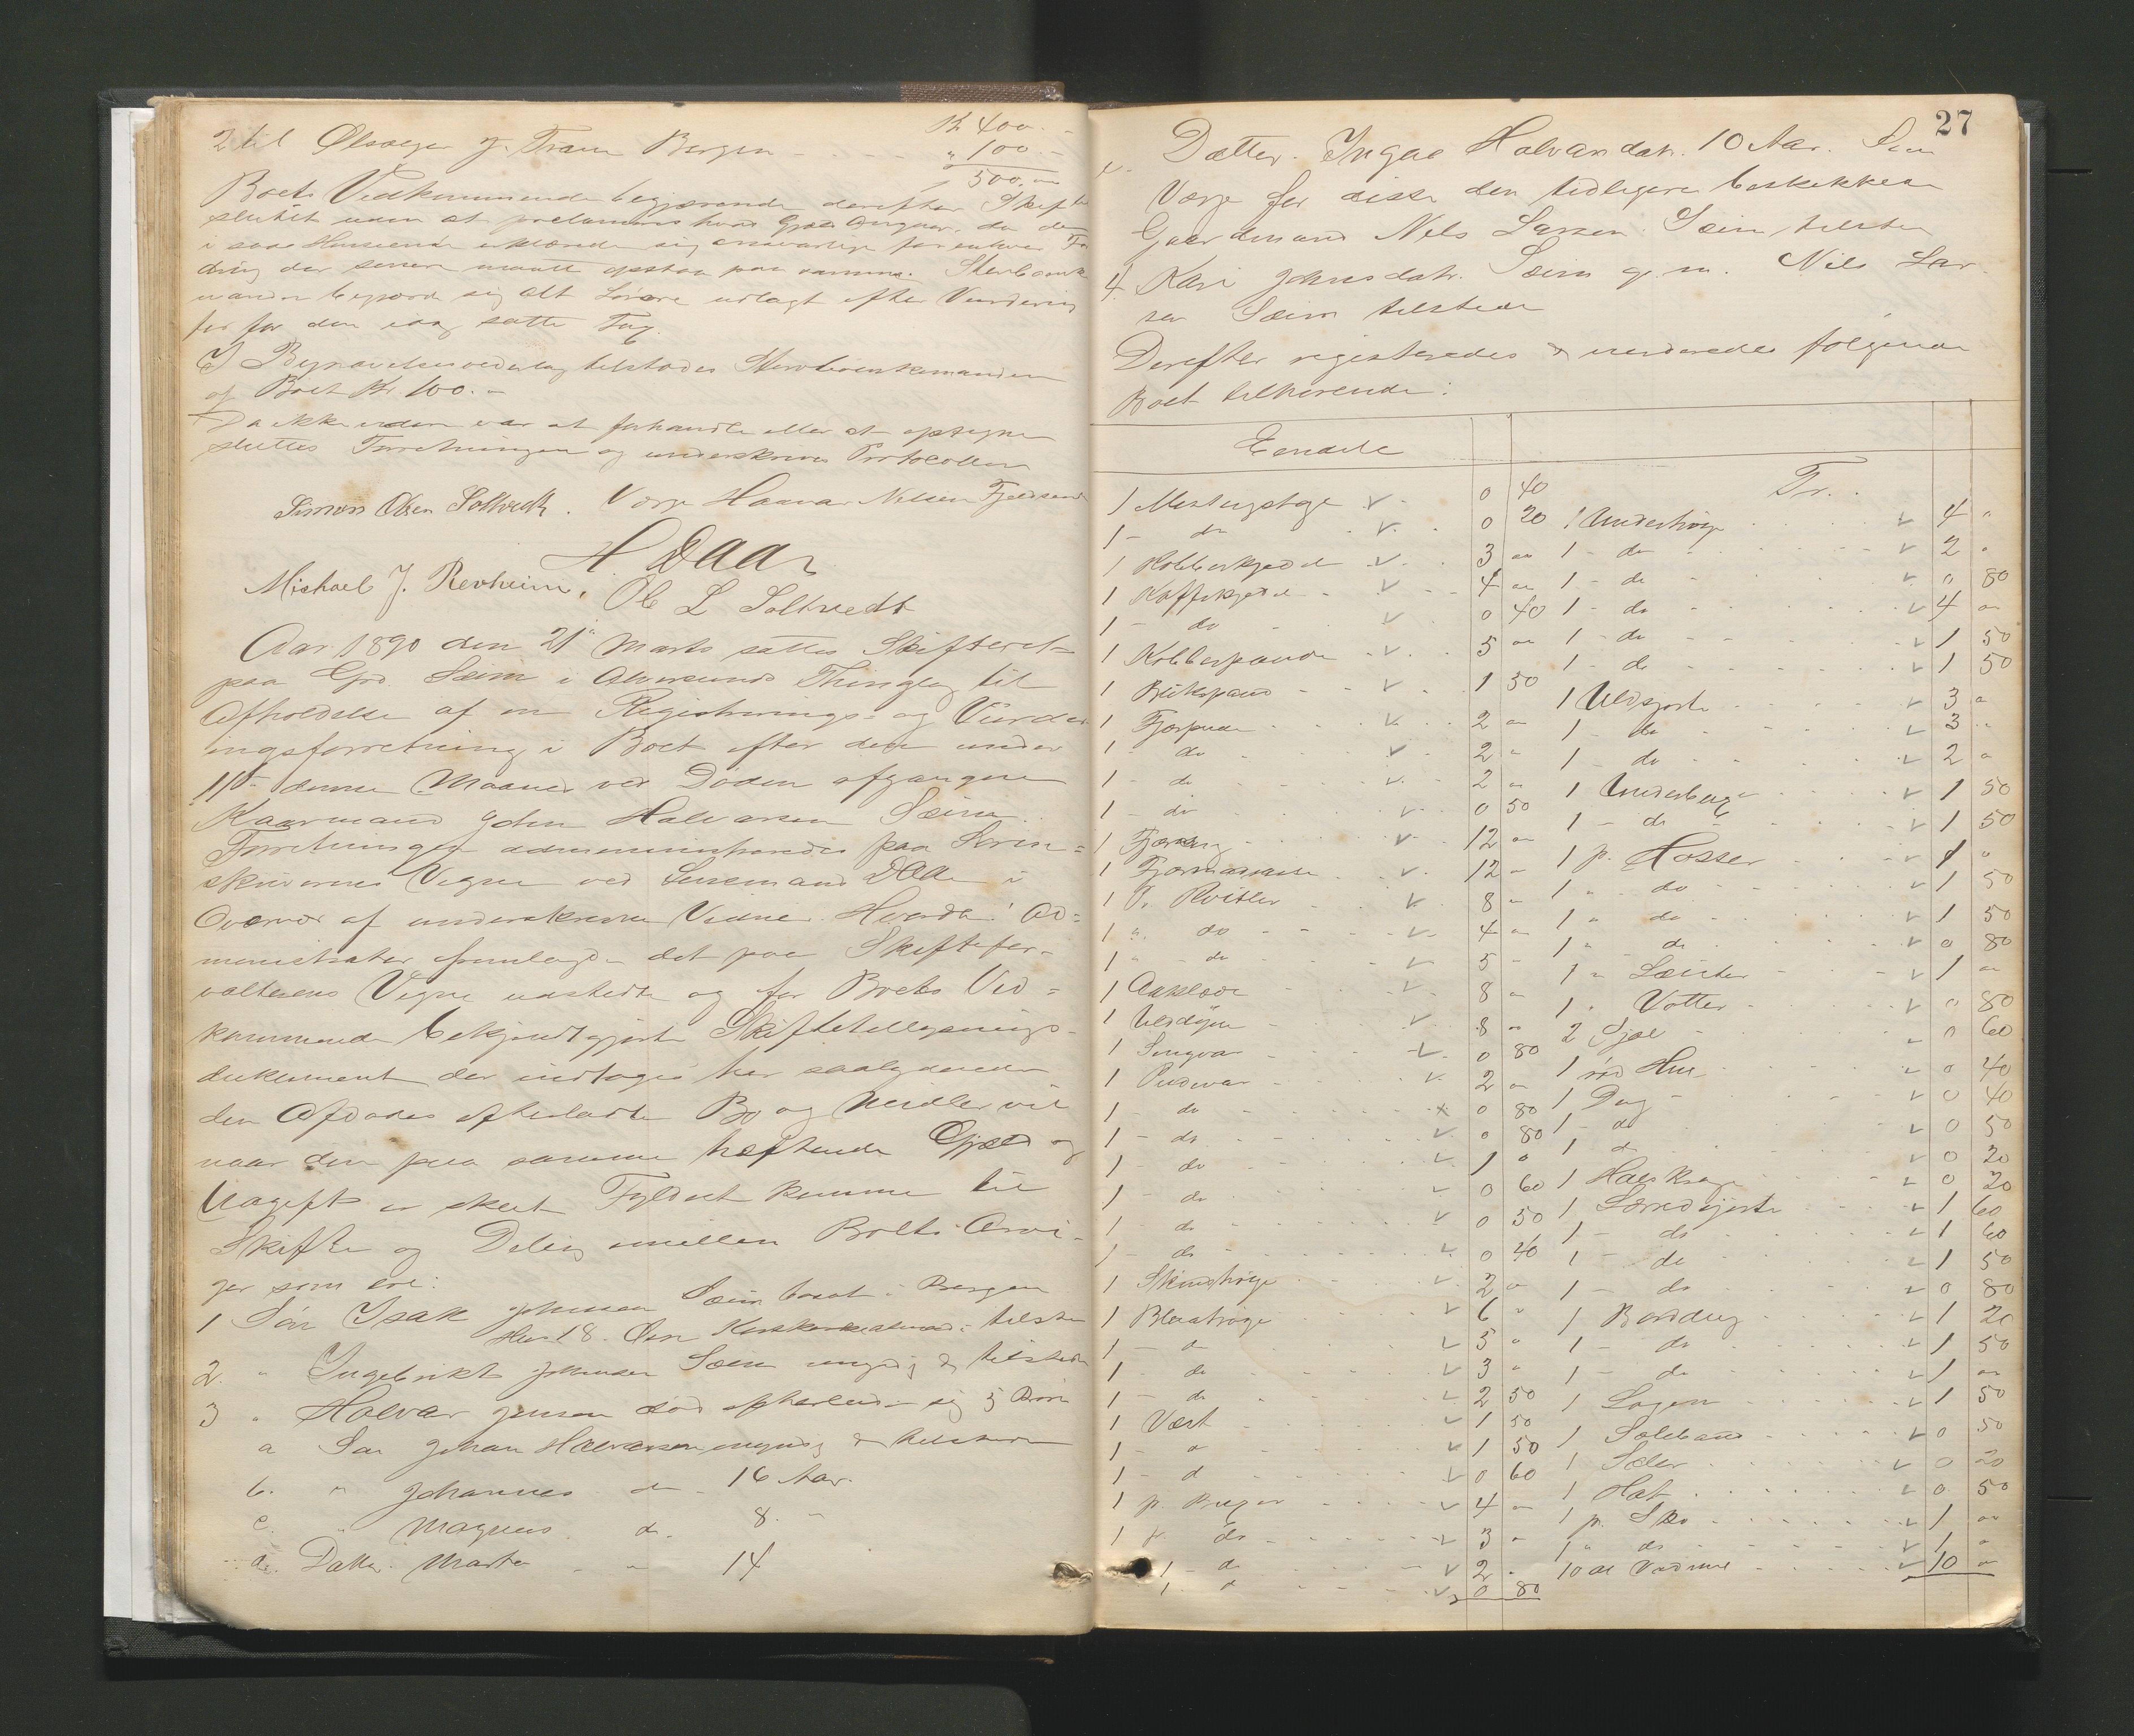 Kr 400. -
2 til Ølsælger J. Fraen Bergen - - - - " 100 -
500. "
Boets Vedkommende begjærende derefter Skiftet
sluttet uden at proclamers hvad Gjæld angaar, da de
i saa Henseende erklærede sig ansvarlige for enhver For
dring der senere maatte opstaa paa samme. Sterboenke
manden begjærede sig alt Løsøre udlagt efter Vurdering
for den idag satte Tax.
I Begravelsesvederlag tilstodes Sterboenkemanden
af Boet Kr. 100. -
Da ikke videre var at forhandle eller at optegne
sluttes Forretningen og underskrives Protocollen
Simon Olsen Soltvedt. Værge Haavar Nilsen Fjeldsende
H Daae
Michael J. Revheim. Ole L Soltvedt
Aar 1890 den 21de Marts sattes Skifteret
paa Grd. Seim i Alversunds Thinglag til
Afholdelse af en Registrerings- og Vurder
ingsforretning i Boet efter den under
11te denne Maaned ved Døden afgangne
Kaarmand John Halvarsen Seim.
Forretningen administreredes paa Soren=
skriverens Vegne ved Lensmand Daae i
Overvær af underskrevne Vidner. Hvorda! Ad=
ministrator fremlagde det paa Skiftefor-
valterens Vegne udstedte og for Boets Ved=
kommende bekjendtgjorte Skiftetillysnings-
dokument der indtages her saalydende
den Afdødes efterladte Bo og Midler vil
naar den paa samme heftende Gjæld og
Udgift er skeet Fyldest komme til
Skifte og Deling mellem Boets Arvi-
ger som ere:
1 Søn Isak Johnsen Seim bosat i Bergen
tilstede
2. " Ingebrikt Johnsen Seim myndig & tilstede
3 " Halvar Jensen død efterladende sig 5 Børn
a Søn Johan Halvarsen myndig & tilstede
b. " Johannes do - 16 Aar.
c. " Magnus do. 8. "
d. Datter. Marta - " 14
27
e. Datter. Inga Halvardatr. 10 Aar. Som
Værge for disse den tidligere beskikkede
Gaardmand Nils Larsen Seim, tilstede
4. Kari Johnsdatr. Seim g. m. Nils Lar
sen Seim tilstede
Derefter registreredes & vurderedes følgende
Boet tilhørende:
Eiendele
1 Messingstage 0 40
1 - do 0 20
1 Kobberkjedel 3 "
1 Kaffekjedel 4 "
1 - do 0 40
1 Kobberpande 5 "
1 Blikspand 1 50
1 Fjærpude 2 "
1 do 2 "
1 - do 2 "
1 - do 0 50
1 12 "
1 Fjærmadrasse 12 "
1 8 "
1 " do 4 "
1 " do 5 "
1 Aaklæde 8 "
1 Ulddyne 8 "
1 0 80
1 Pudevar 2 "
1 - do 0 80
1 - do 0 80
1 - do 1 "
1 - do 0 60
1 - do 0 50
1 - do 0 40
1 Skindtrøye 2 "
1 Blaatrøye 6 "
1 - do 5 "
1 - do 3 "
1 - do 2 50
1 Vest 1 50
1 - do 1 50
1 - do 0 60
1 p. Buxer 4 "
1 p. do 3 "
1 - do 2 "
1 - do 0 80
Tr.
1 Undertrøye 4 "
1 - do 2 "
1 - do 0 80
1 - do 4 "
1 - do 1 50
1 - do 1 50
1 Uldskjorte 3 "
1 - do 3 "
1 do 2 "
1 Underbuxe 1 50
1 - do 1 50
1 p. Hosser 1 "
1 " do 1 50
1 " do 1 50
1 " do 0 80
1 " Læster 1 "
1 " Votter 0 80
2 Sjal 0 60
1 rød Hue 0 40
1 Dug 0 40
1 - do 0 50
1 do 0 20
1 Halskrage 0 20
1 Lærredskjorte 1 60
1 - do 1 60
1 - do 1 50
1 - do 0 80
1 Borddug 1 20
1 - do 1 50
1 - do 1 "
1 Lagen 1 50
1 0 50
1 Seler 0 20
1 Hat 0 50
1 p. Sko 1 "
1 " do 1 "
10 al Vadmel 10 "